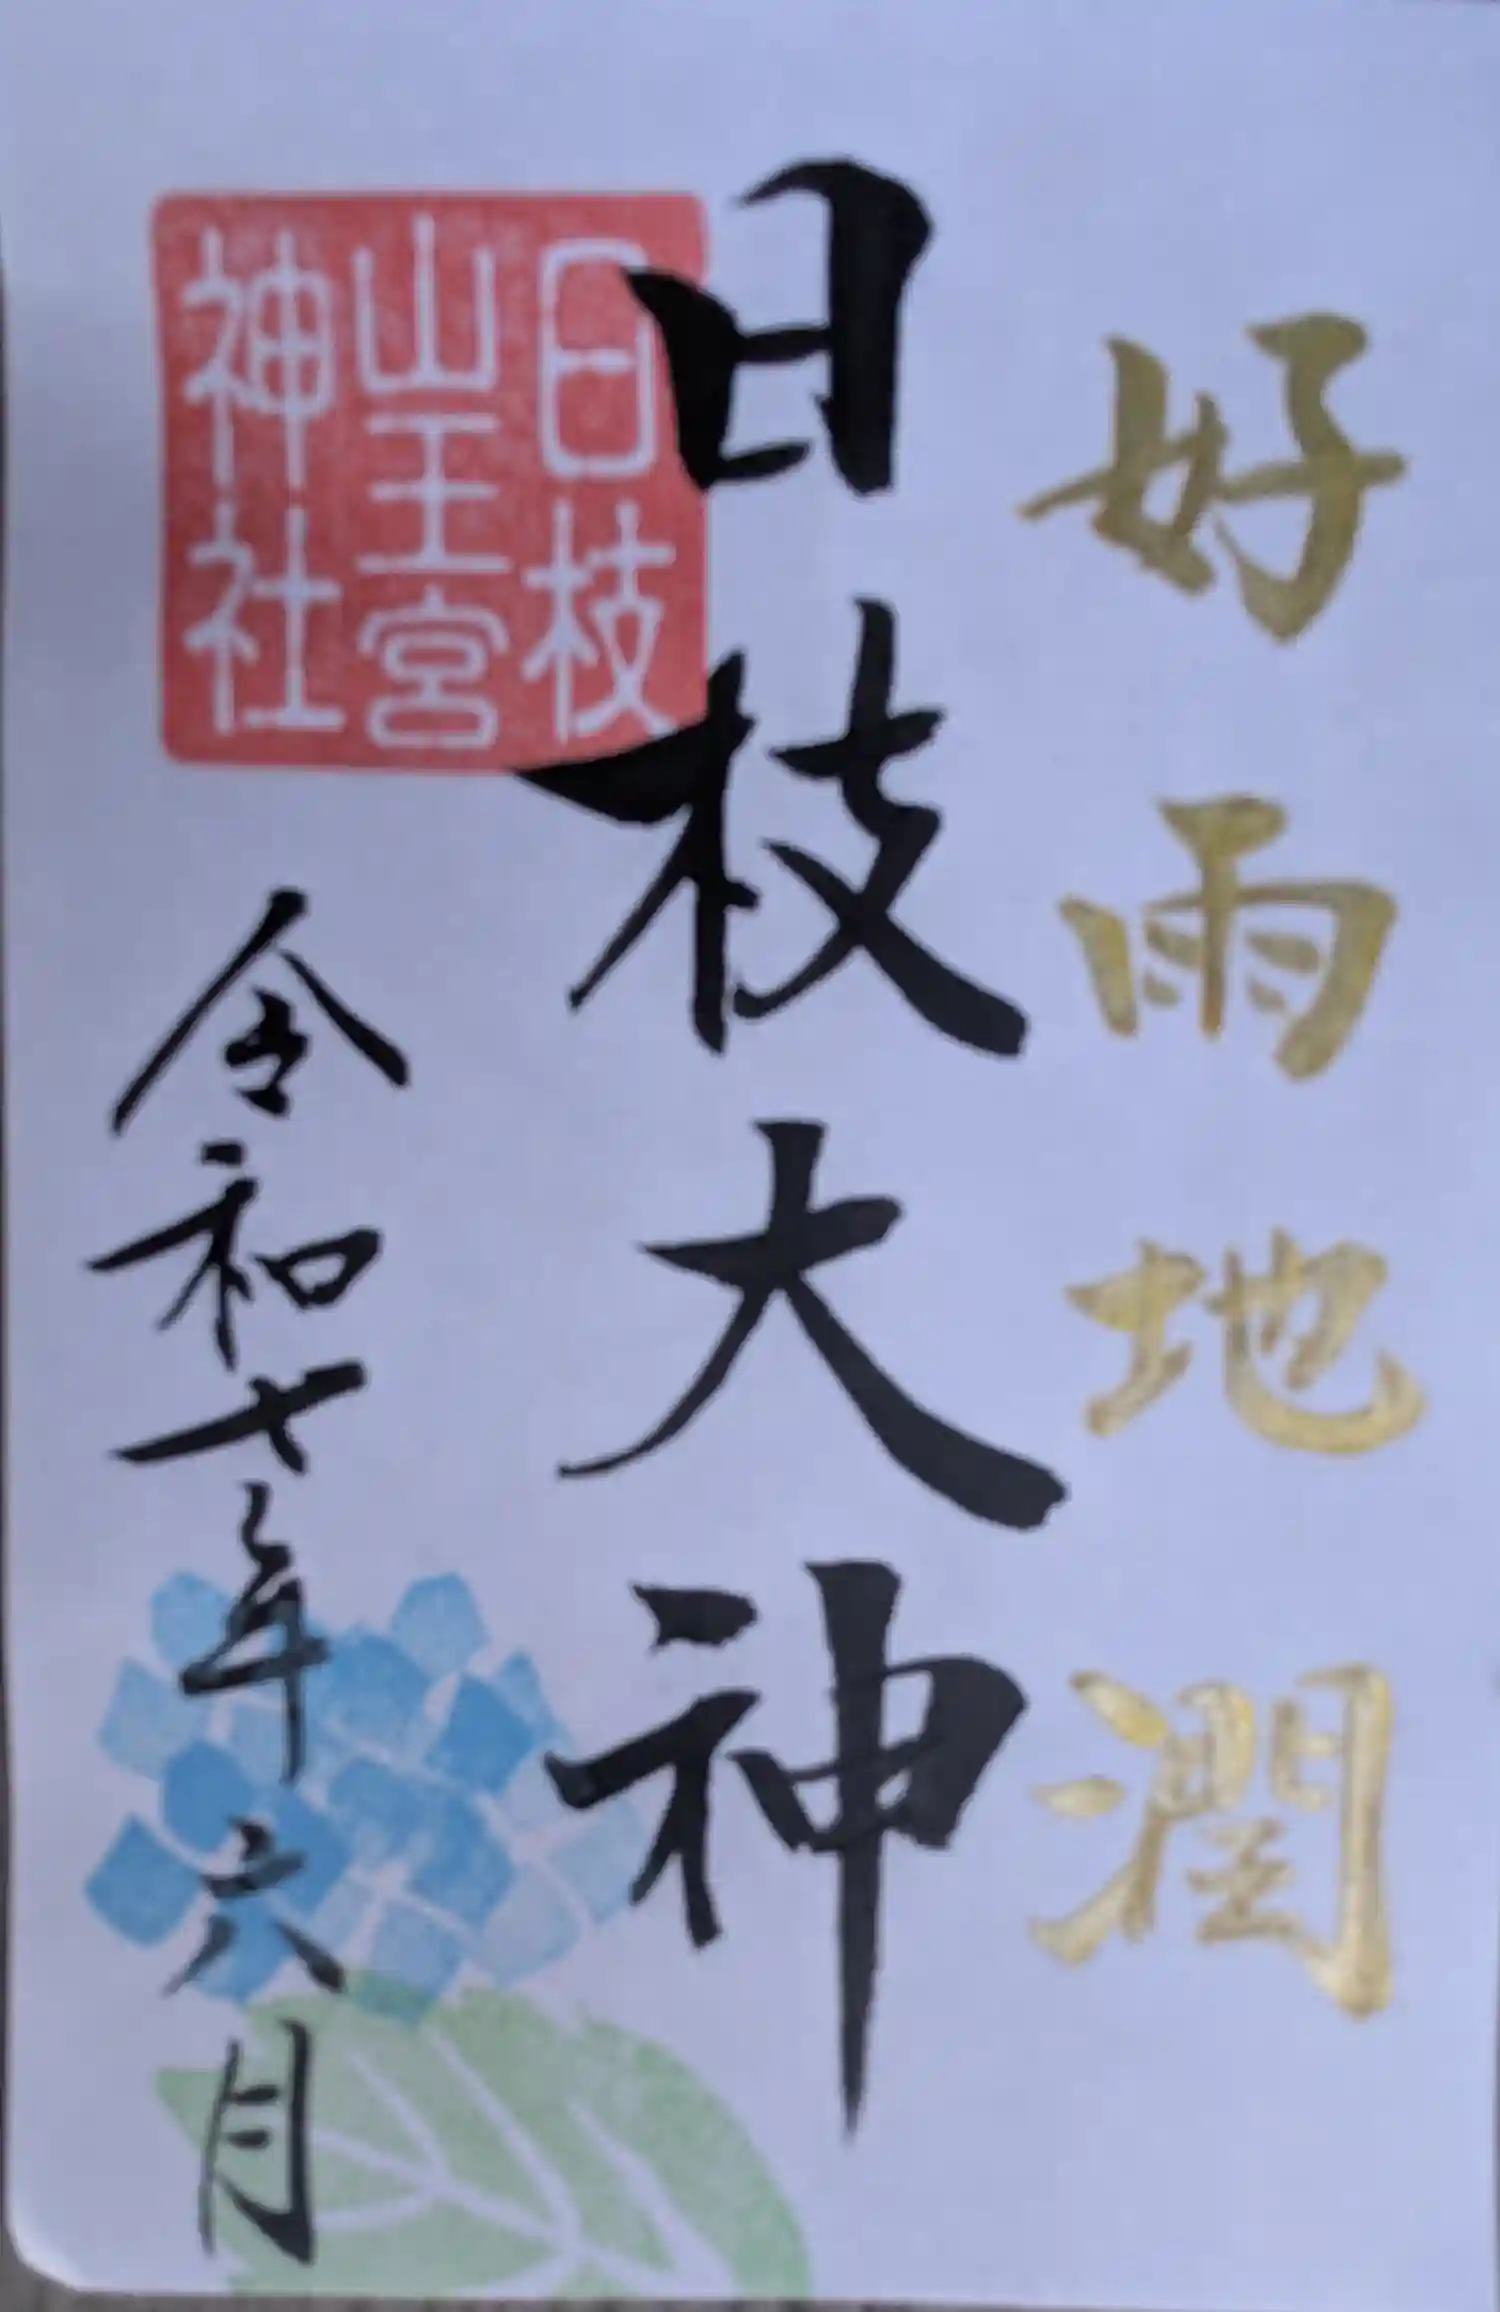 好雨地潤
日枝大神
日枝
山王宮
神社
令和七年六月